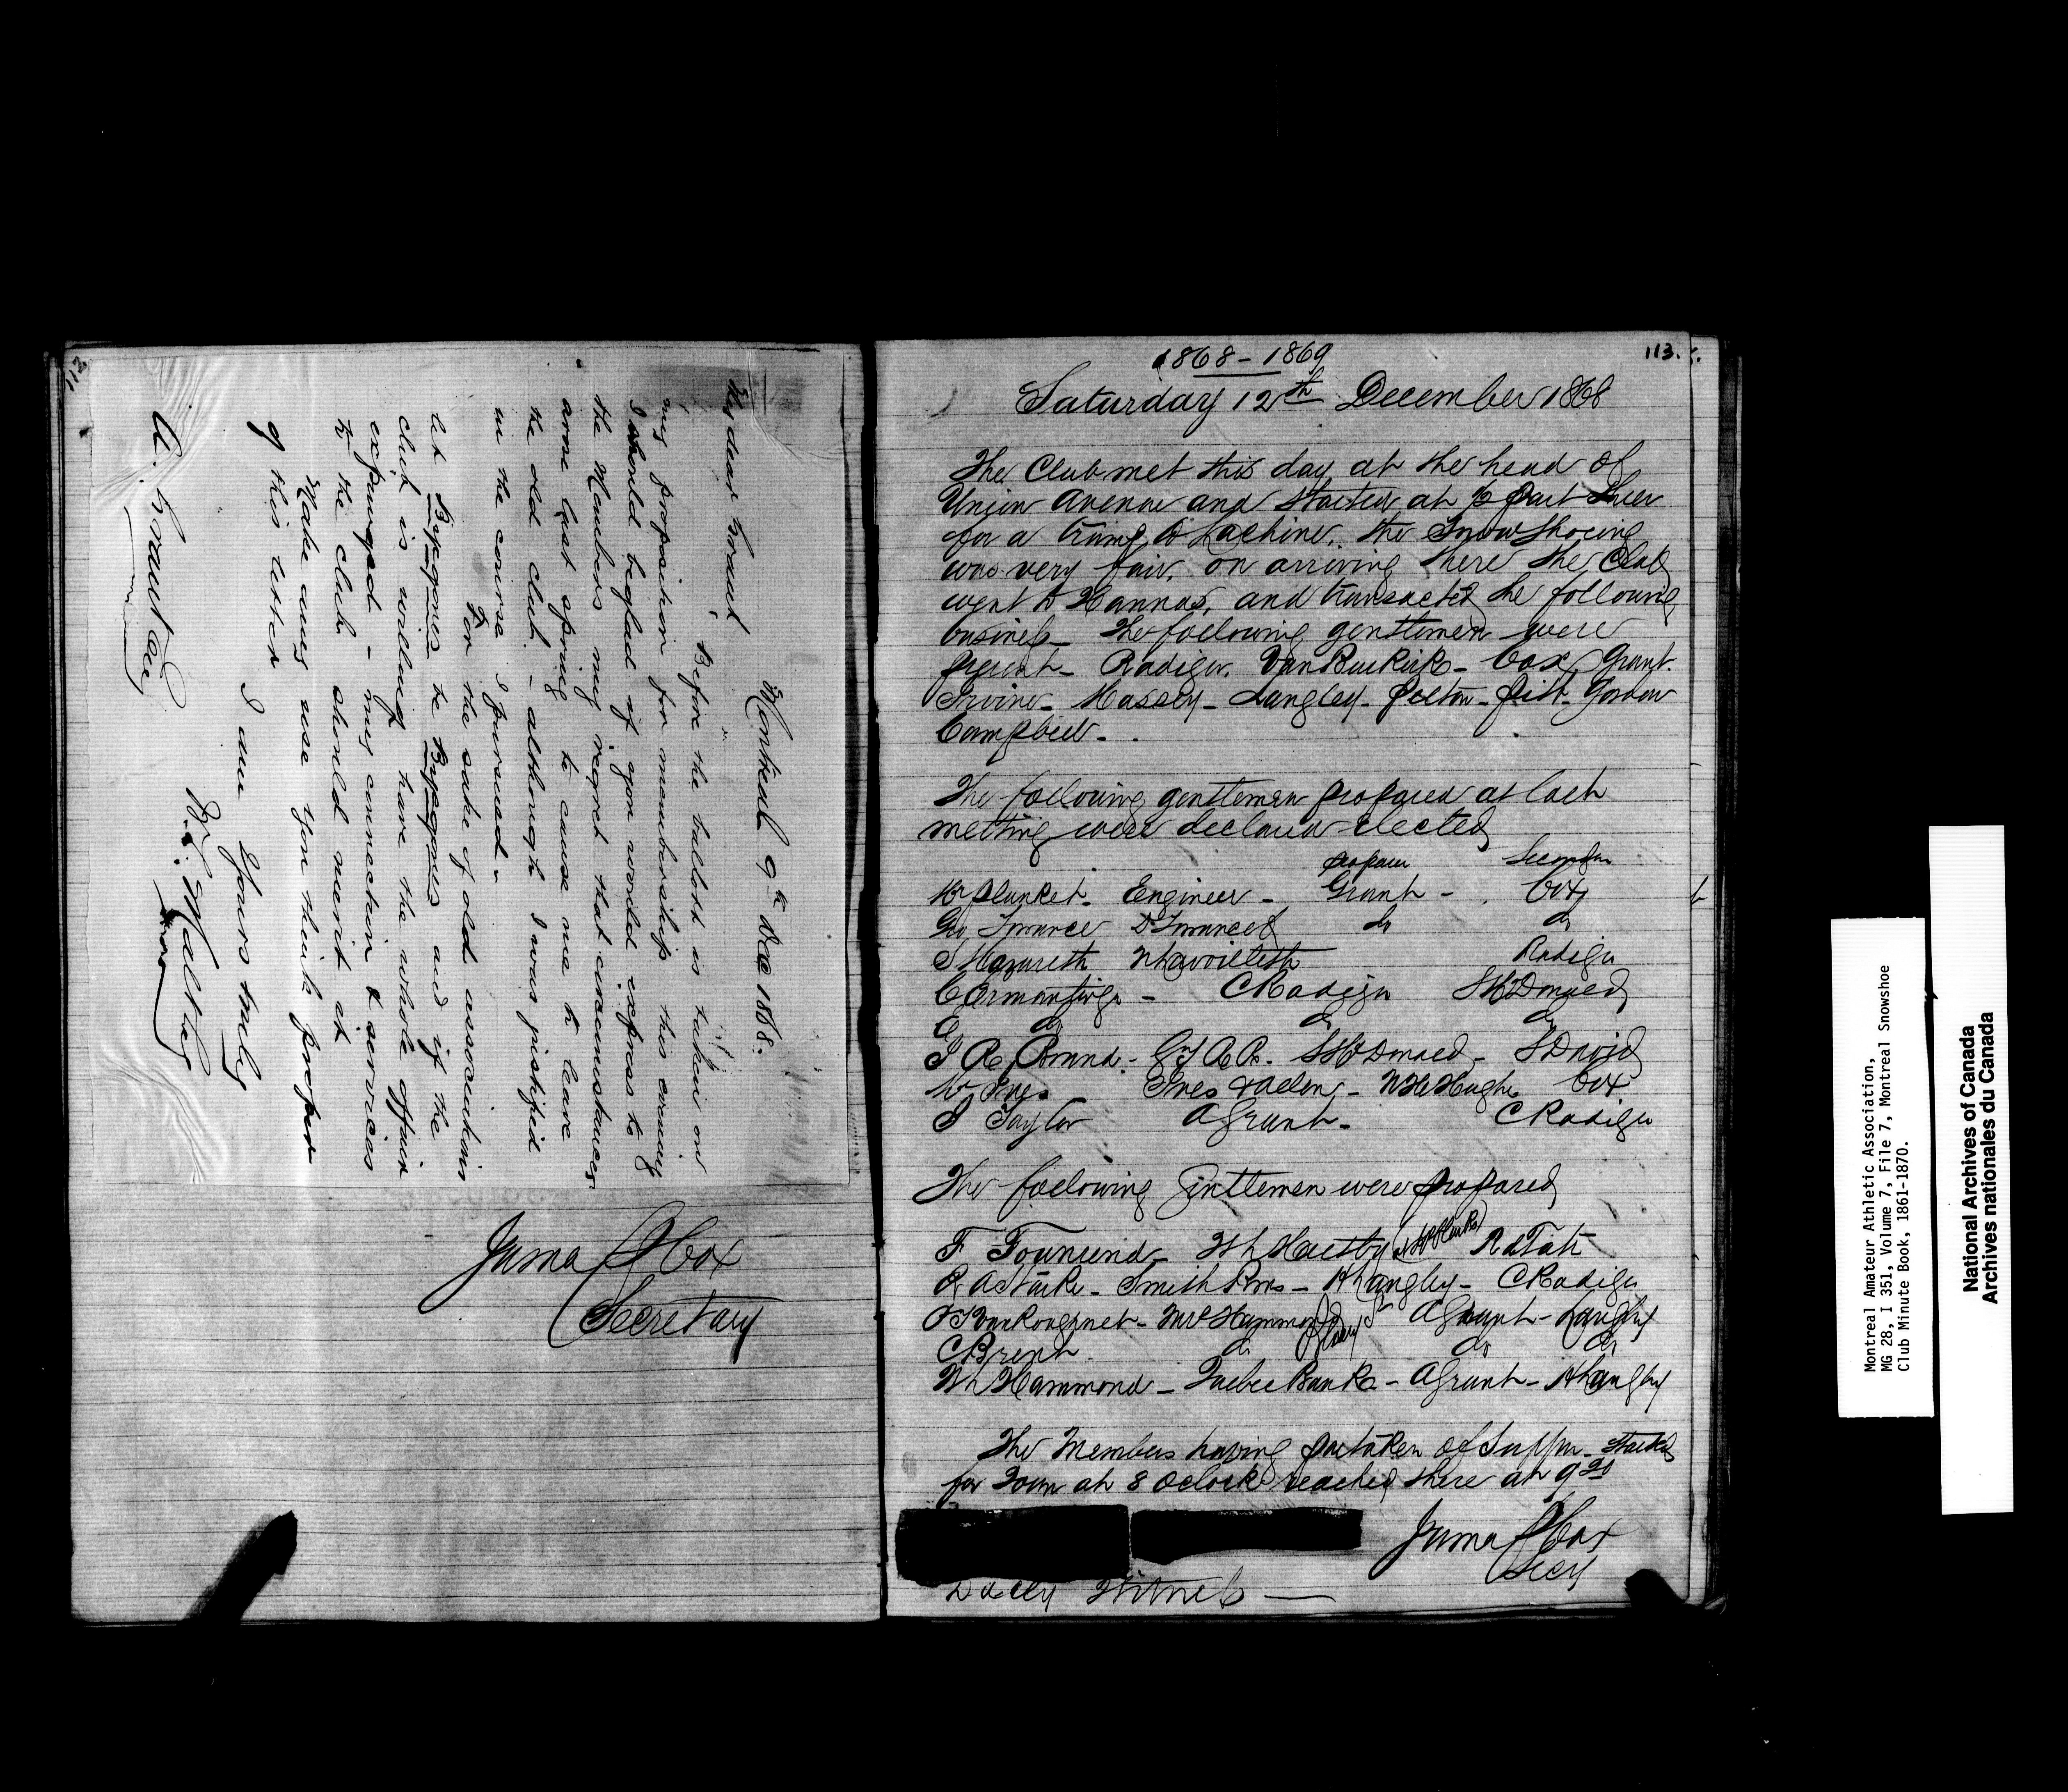 112
Montreal 9th Dec 1868.
My dear Grant
Before the ballot is taken on
my proposition for membership this evening
I should be glad if you would express to
the Members my regret that circumstances
arose last spring to cause me to leave
the old club - although I was justified
in the course I pursued -
For the sake of old associations
let Bygones be Bygones and if the
club is willing have the whole affair
expunged - my connection & services
to the club should merit it
Make any use you think proper
of this letter
I am Yours truly
A. Grant Esq
James Cox
Secretary
113.
1868 - 1869
Saturday 12th December 1868
The Club met this day at the head of
Union Avenue and started at ½ past three
for a tramp to Lachine. the Snow Shoeing
was very fair. on arriving there the Club
went to Hannas, and transacted the following
business The following gentlemen were
present - Radiger. Van Buskirk - Cox Grant.
Irvine - Massey - Langley - Pelton - Pitt - Gordon
Campbell -
The following gentlemen proposed at last
meeting were declared elected
proposer Seconder
Plunket. Engineer - Grant - Cox
Geo Torrance D Torrance & do do
Nazareth Radiger
C Ormantinge - C Radiger McDonald
do do do
Brund. - G T R Co. McDonald - David
W Ives Ives & Allen - Hughes Cox
Taylor A Grant - C Radiger
The following Gentlemen were proposed
F Townsend - R Tait
R A Starke - Smith Bros - H Langley - C Radiger
VanKoughnet - Hammond A Grant - Langley
C Brent. do do do
Wh Hammond - Quebec Bank - A Grant - H Langley
The Members having partaken of Supper - Started
for Town at 8 Oclock reached there at 9 20
James Cox
Secy
Daily Witness —
Montreal Amateur Athletic Association,
MG 28, I 351, Volume 7, File 7, Montreal Snowshoe
Club Minute Book, 1861-1870.
National Archives of Canada
Archives nationales du Canada